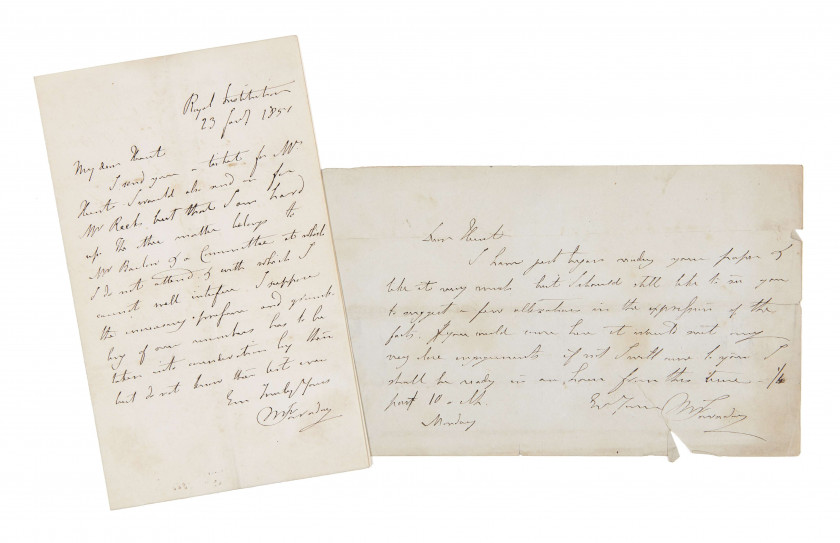 Royal Institution
23 Jany 1851
My dear Hunt
I send you a ticket for Mrs
Hunt I would also send one for
Mr but that I am hard
up The other matter belongs to
Mr Barlow & a Committee at which
I do not attend & with which I
cannot well interfere I suppose
the increasing pressure and
of our members has to be
taken into consideration by them
but do not know their
Ever Truly Yours
M Faraday
Dear Hunt
I have just begun reading your paper &
like it very much but I should still like to see you
to suggest a few alterations in the expression of the
facts. If you could move here it would suit my
very close arrangements if not I will come to you I
shall be ready in an hour from this time
past 10 o clk.
Ever Yours M Faraday
Monday